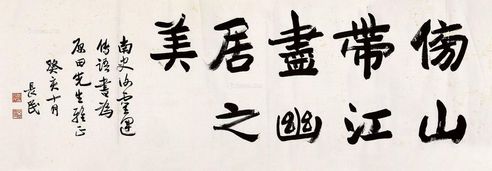 傍山
帶江
盡幽
居之
美
南史謝靈運
傳語書為
原田先生雅正
癸亥十月
長民